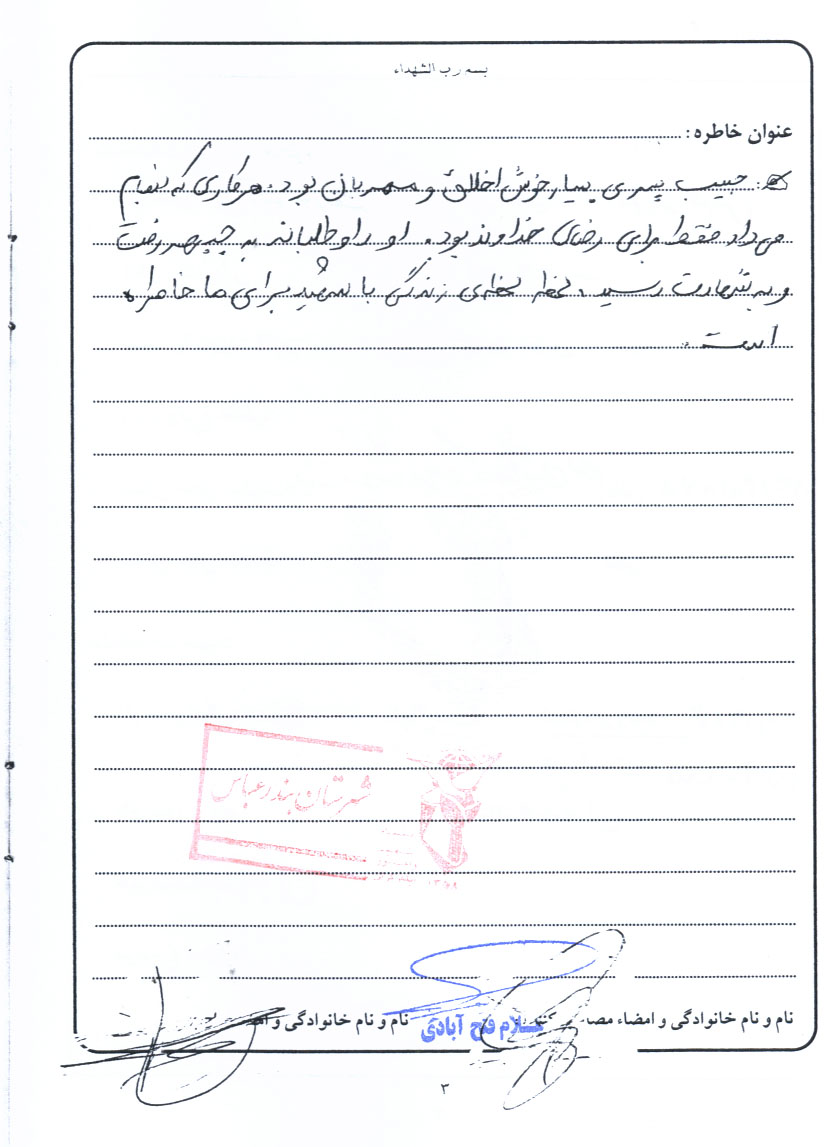 بسم رب الشهداء
عنوان خاطره :
حبیب پسری بسیار خوش اخلاق و مهربان بود. هر کاری که انجام
می داد فقط برای رضای خداوند بود. او داوطلبانه به جبهه رفت
و به شهادت رسید. لحظه لحظه‌ی زندگی با شهید برای ما خاطره
است.
شهرستان بندرعباس
نام و نام خانوادگی و امضاء
فتح آبادی
نام و نام خانوادگی و
۳